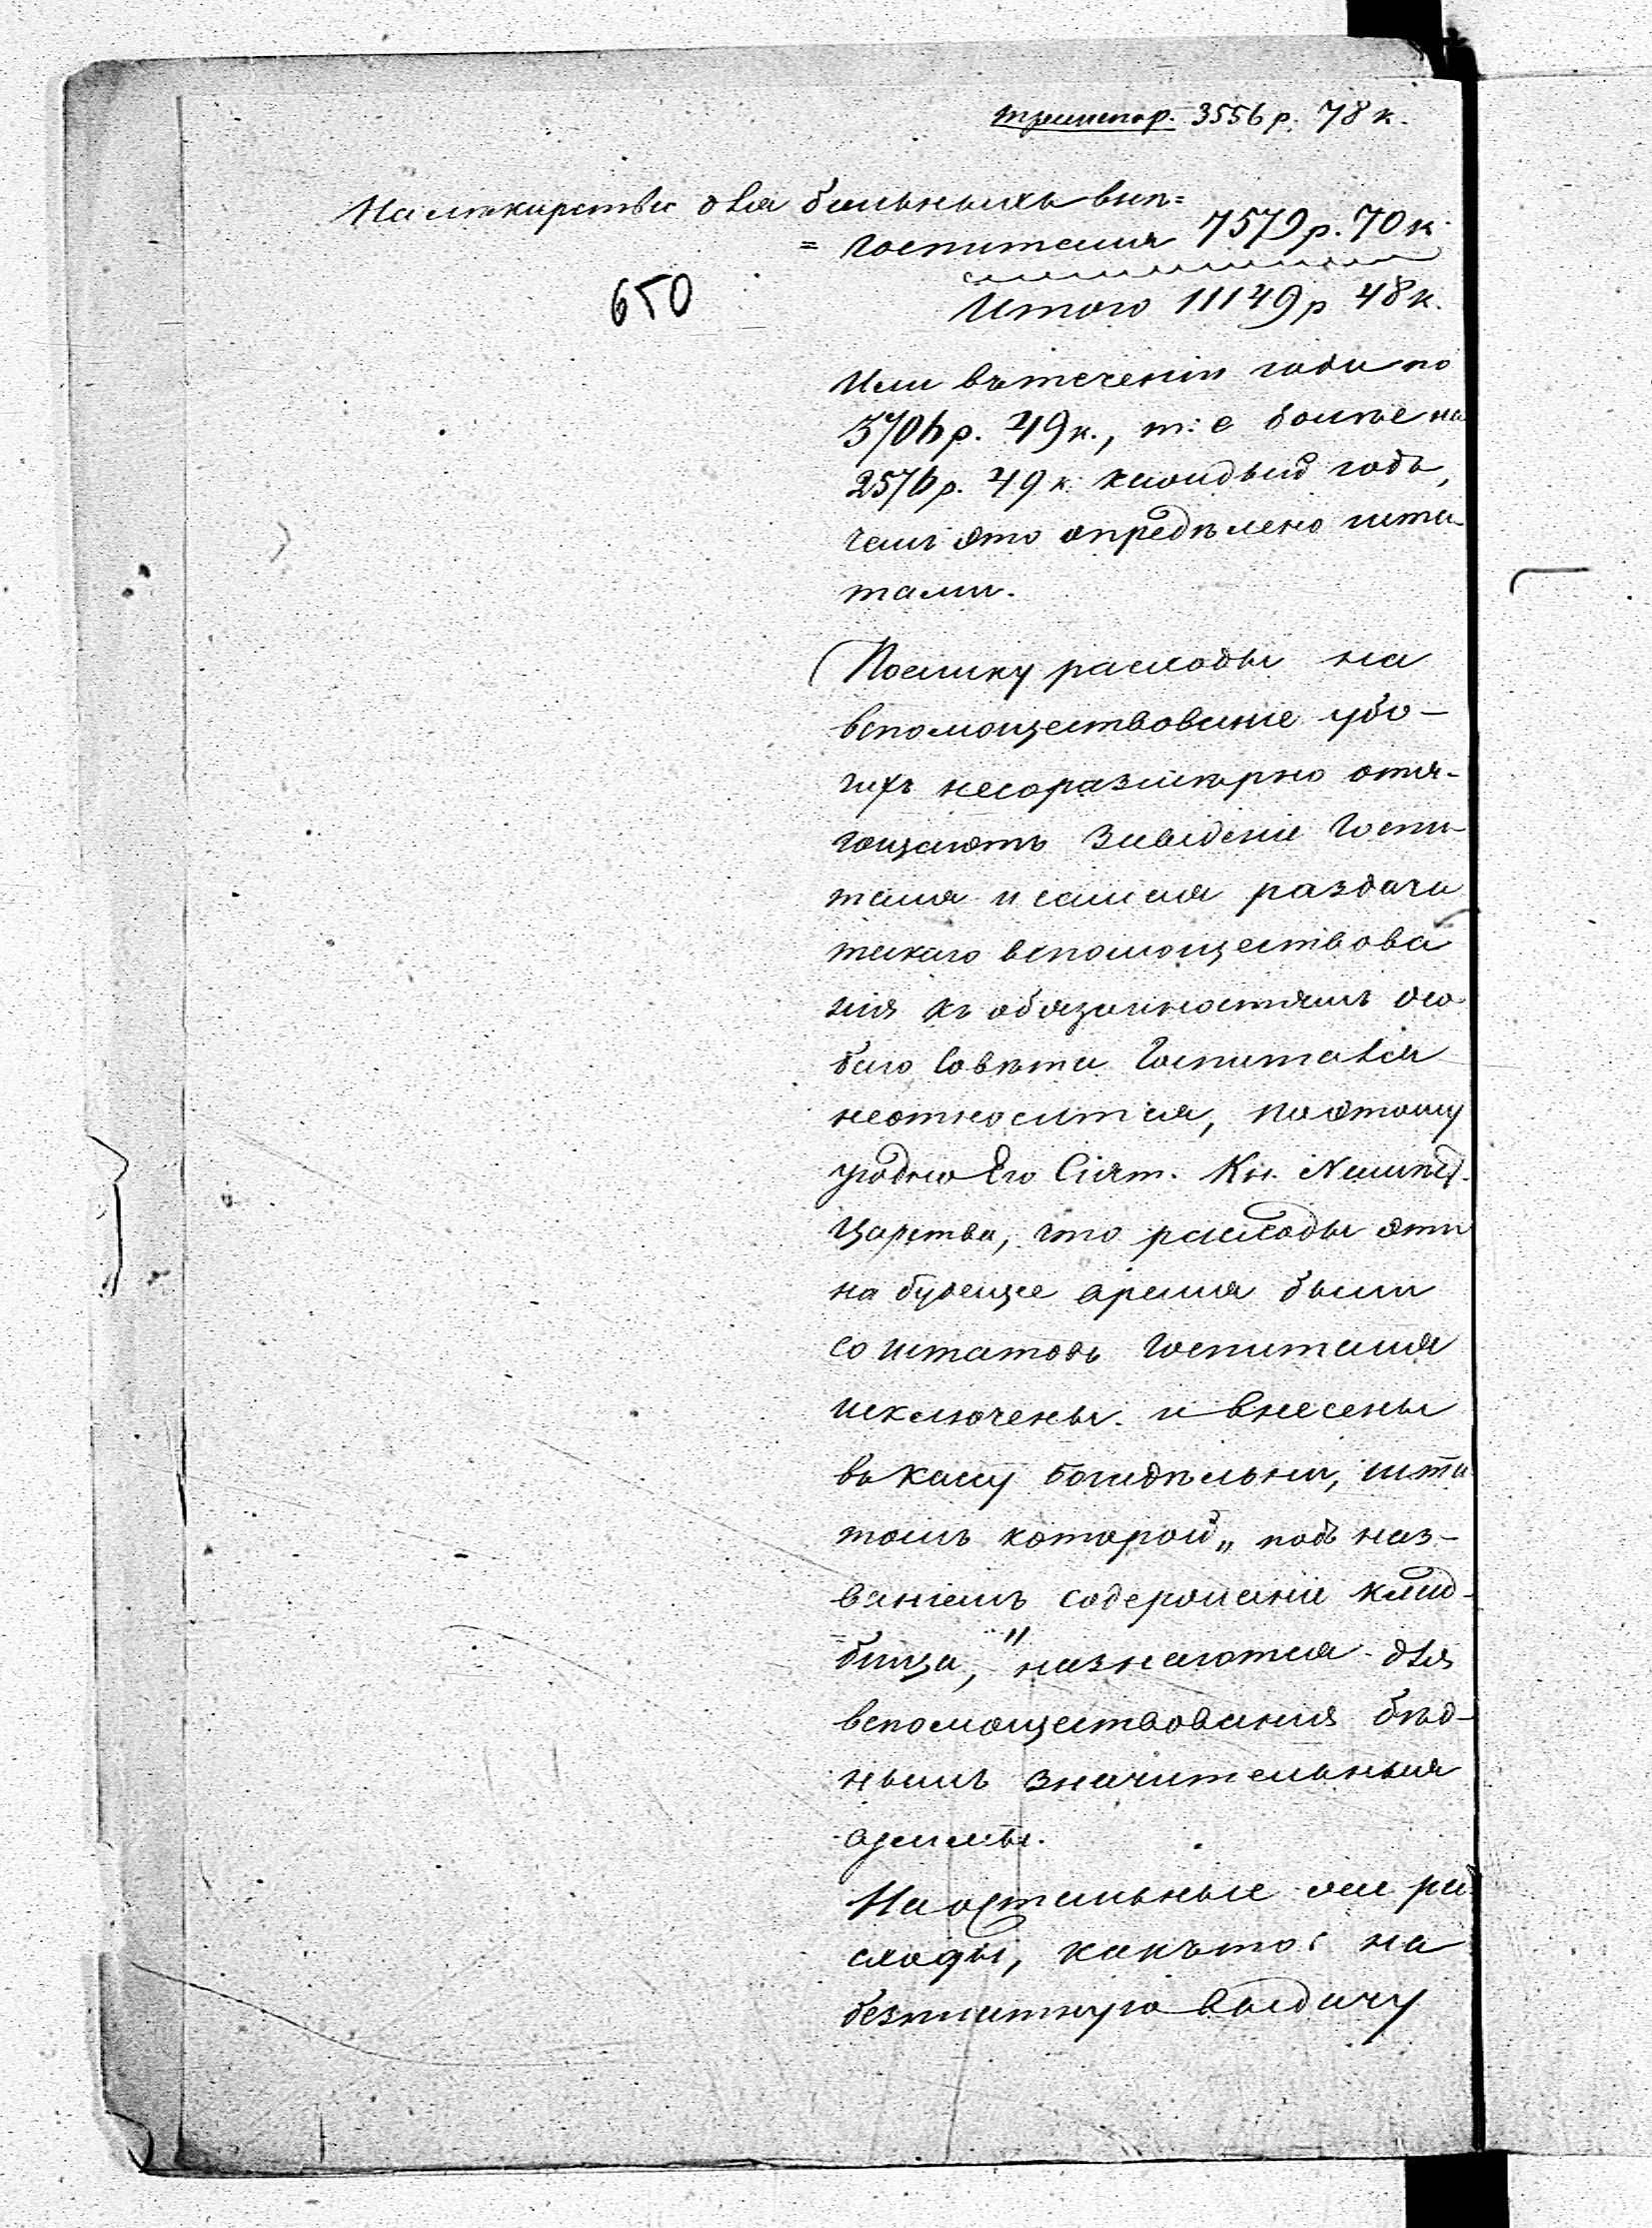 транспор. 3556 р. 78 к.
На лѣкарства для больныхъ внѣ=
= госпиталя 7579 р. 70 к.
650
Итого 11149 р 48 к.
Или въ теченіи года по
3706 р. 49 к., т: е болѣе на
2576 р. 49 к. каждый годъ,
чемъ это опредѣлено шта-
тами.
Поелику расходы на
вспомоществованіе убо-
гихъ несоразмѣрно отя-
гощаютъ Заведеніе Госпи-
таля и самая раздача
такаго вспомоществова
нія къ обязанностямъ осо
баго Совѣта Госпиталя
неотносится, поэтому
угодно Его Сіят. Кн. Намѣст.
Царства, что расходы эти
на будеще время были
со штатовъ Госпиталя
исключены и внесены
въ кассу богадѣльни, шта
томъ которой „ подъ наз-
ваніемъ содержаніе клад-
бища, " назнаются для
вспомоществованія бѣд-
нымъ значительныя
суммы.
На остальные же ра
сходы, какъ то: на
безплатную выдачу